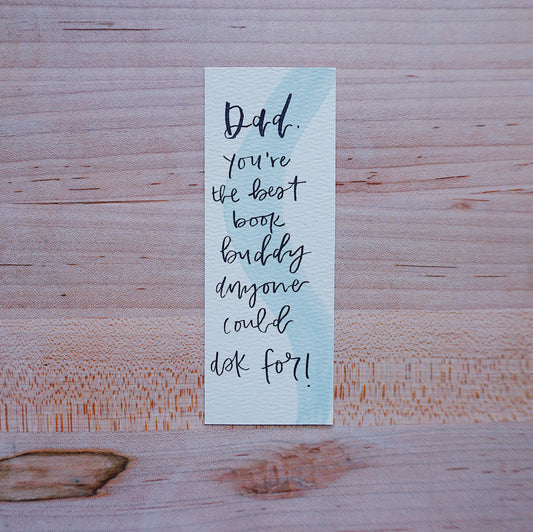 Dad.
you're
the best
book
buddy
anyone
could
ask for!